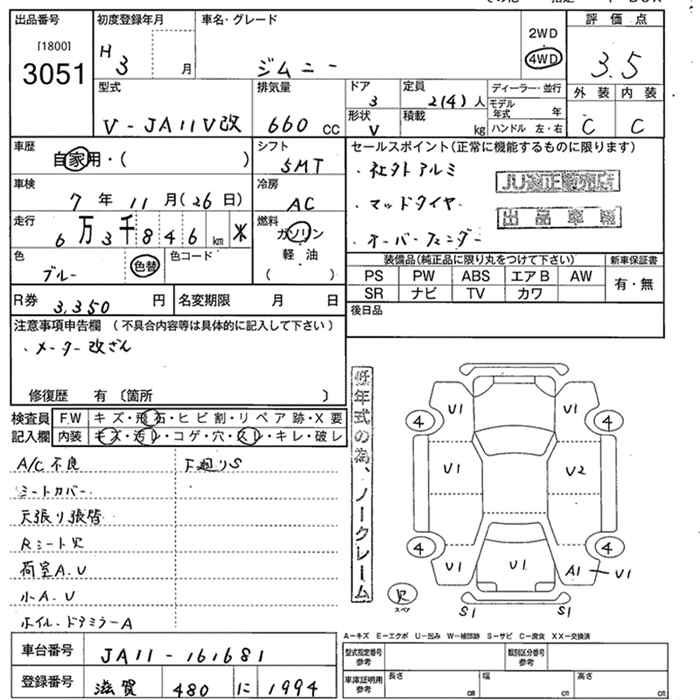 出品番号
[1800]
3051
初度登録年月
H 3 月
車名・グレード
ジムニー
2WD
4WD
評価点
3.5
外装 内装
C C
型式
V-JA11V改
排気量
660 CC
ドア
3
形状
V
定員
2(4)人
積載
kg
ディーラー・並行
モデル年式 年
ハンドル 左・右
車歴
自家用・( )
シフト
5MT
セールスポイント(正常に機能するものに限ります)
・社外アルミ
・マッドタイヤ
・オーバーフェンダー
JU適正販売店
出品車輌
車検
7年 11月(26日)
冷房
AC
走行
6万3千846 km ※
燃料
ガソリン
軽油
( )
色
ブルー
色替
色コード
装備品(純正品に限り丸をつけて下さい)
PS PW ABS エアB AW
SR ナビ TV カワ
新車保証書
有・無
R券 3,350 円
名変期限 月 日
後日品
注意事項申告欄 (不具合内容等は具体的に記入して下さい)
・メーター改ざん
修復歴 有〔箇所 〕
検査員記入欄
FW キズ・飛石・ヒビ割・リペア跡・X要
内装 キズ・汚レ・コゲ・穴・スレ・キレ・破レ
A/C不良
シートカバー
天張り張替
Rシート欠
荷室A.U
小A.U
ホイル.ドアミラーA
下廻りS
低年式の為、ノークレーム
U1 U1
4 4
U1 U2
4 4
U1 U1 A1 U1
欠
スペア
S1 S1
A-キズ E-エクボ U-凹み W-補修跡 S-サビ C-腐食 XX-交換済
車台番号
JA11-161681
登録番号
滋賀 480 に 1994
型式指定番号
参考
類別区分番号
参考
車庫証明用
参考
長さ cm
幅 cm
高さ cm